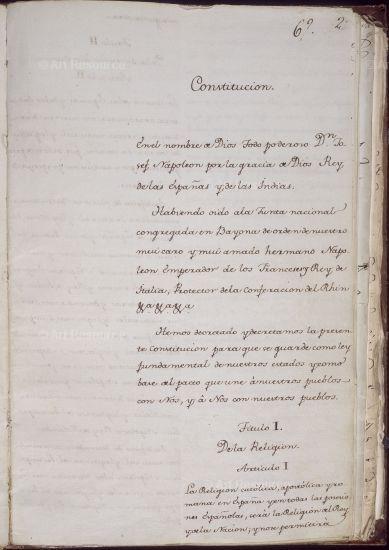 6º. 2
Constitucion.
En el nombre de Dios Todo poderoso Dn Jo
sef Napoleon por la gracia de Dios Rey,
de las Españas y de las Indias.
Habiendo oido ala Junta nacional
congregada en Bayona de orden de nuestro
mui caro y mui amado hermano Nap
leon Emperador de los Franceses y Rey de
Italia, Protector dela Conferacion del Rhin
Hemos decretado y decretamos la presen
te Constitucion para que se guarde como ley
fundamental de nuestros estados y como
base del pacto que une á nuestros pueblos
con Nos, y á Nos con nuestros pueblos.
Titulo I.
De la Religion.
Articulo I
La Religion católica, apostólica y ro
mana en España y en todas las posesio
nes Españolas, será la Religion del Rey
y de la Nacion; y no se permitirá
© Art Resource